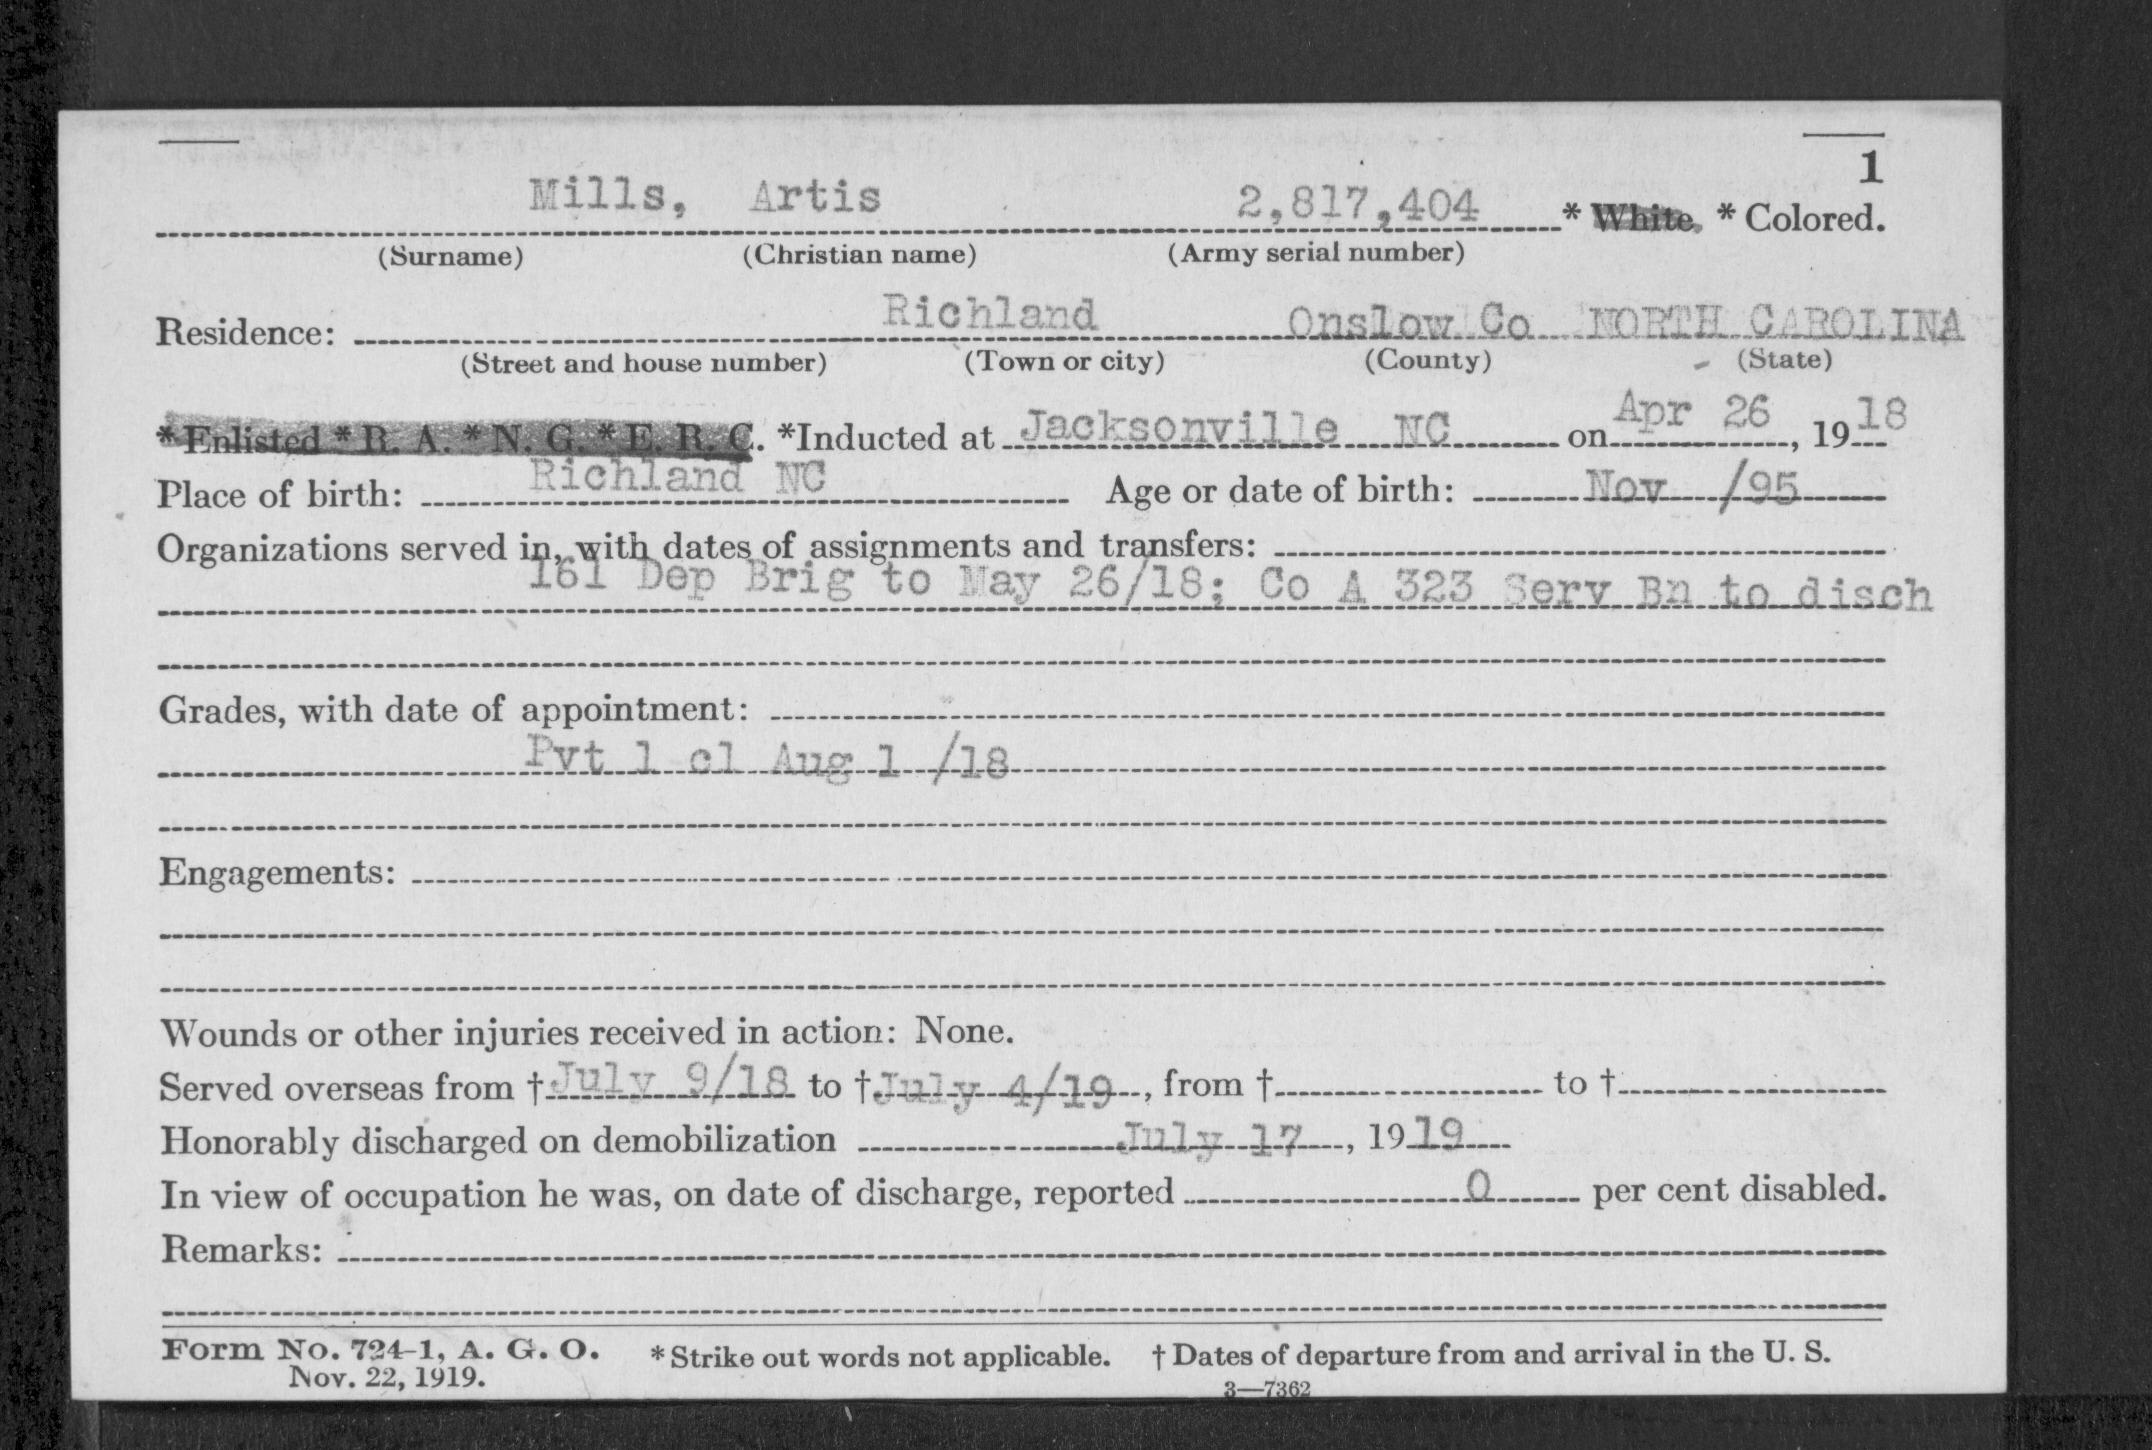 1
Mills, Artis 2,817,404 * White, * Colored.
(Surname) (Christian name) (Army serial number)
Richland Onslow Co NORTH CAROLINA
Residence:
(Street and house number) (Town or city) (County) (State)
*Enlisted *R. A. *N. G. *E. R. C. *Inducted at Jacksonville NC on Apr 26, 1918
Place of birth: Richland NC Age or date of birth: Nov /95
Organizations served in, with dates of assignments and transfers:
161 Dep Brig to May 26/18; Co A 323 Serv Bn to disch
Grades, with date of appointment:
Pvt 1 cl Aug 1 /18
Engagements:
Wounds or other injuries received in action: None.
Served overseas from †July 9/18 to †July 4/19, from † to †
Honorably discharged on demobilization July 17, 1919
In view of occupation he was, on date of discharge, reported 0 per cent disabled.
Remarks:
Form No. 724-1, A. G. O. *Strike out words not applicable. †Dates of departure from and arrival in the U. S.
Nov. 22, 1919.
3—7362